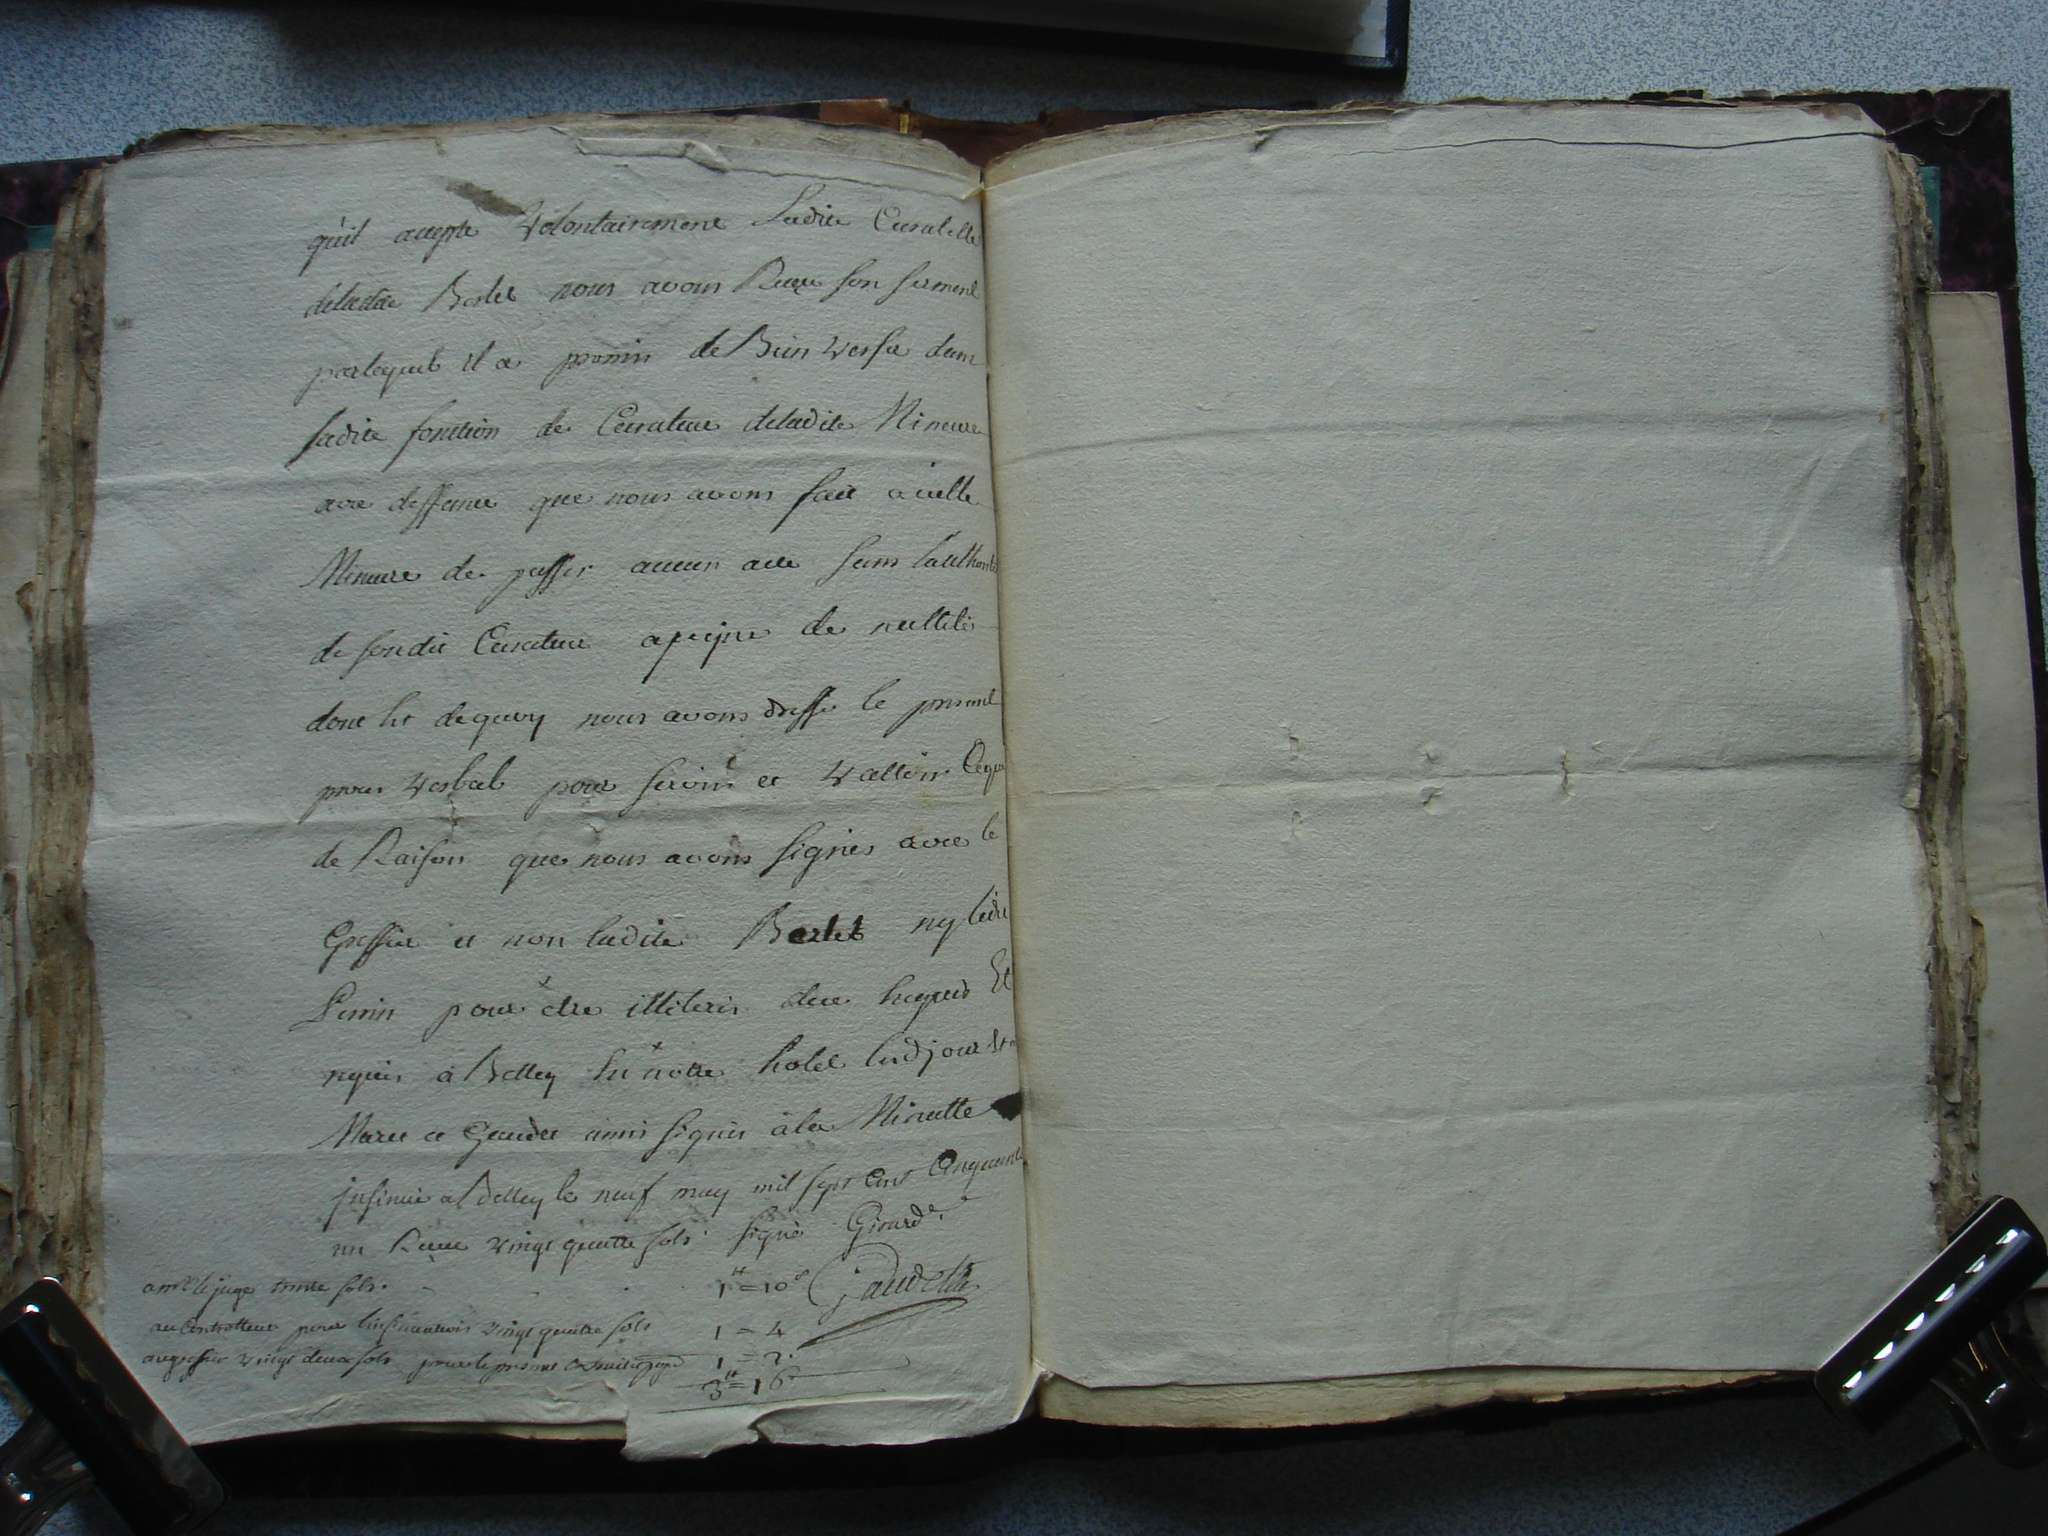 qu'il accepte Volontairement Ladite Curatelle
deladite Borlet nous avons Receu son serment
parlequel il a promis de Bien verser dans
sadite fonction de Curateur deladite Mineure
avec deffence que nous avons fait a icelle
Mineure de passer aucun acte sans l'authorité
de sondit Curateur a peine de nullité
dont et dequoy nous avons dressé le present
proces verbal pour servir et valloir Ceque
de Raison que nous avons signés avec le
Greffier et non ladite Borlet ny ledit
Perrin pour etre illiteris due enquis Et
requis à Belley En notre hotel lesd jour et an
Marc et Gaudet ainsi signés à la Minutte
jnsinué a Belley le neuf may mil sept cent Cinquante
un Receu vingt quatre sols signé Girard
a mr le juge trente sols 1# = 10s Gaudet
au Controlleur pour linsinuation vingt quatre sols 1 = 4
au greffier vingt deux sols pour le present 1 = 2
3# = 16